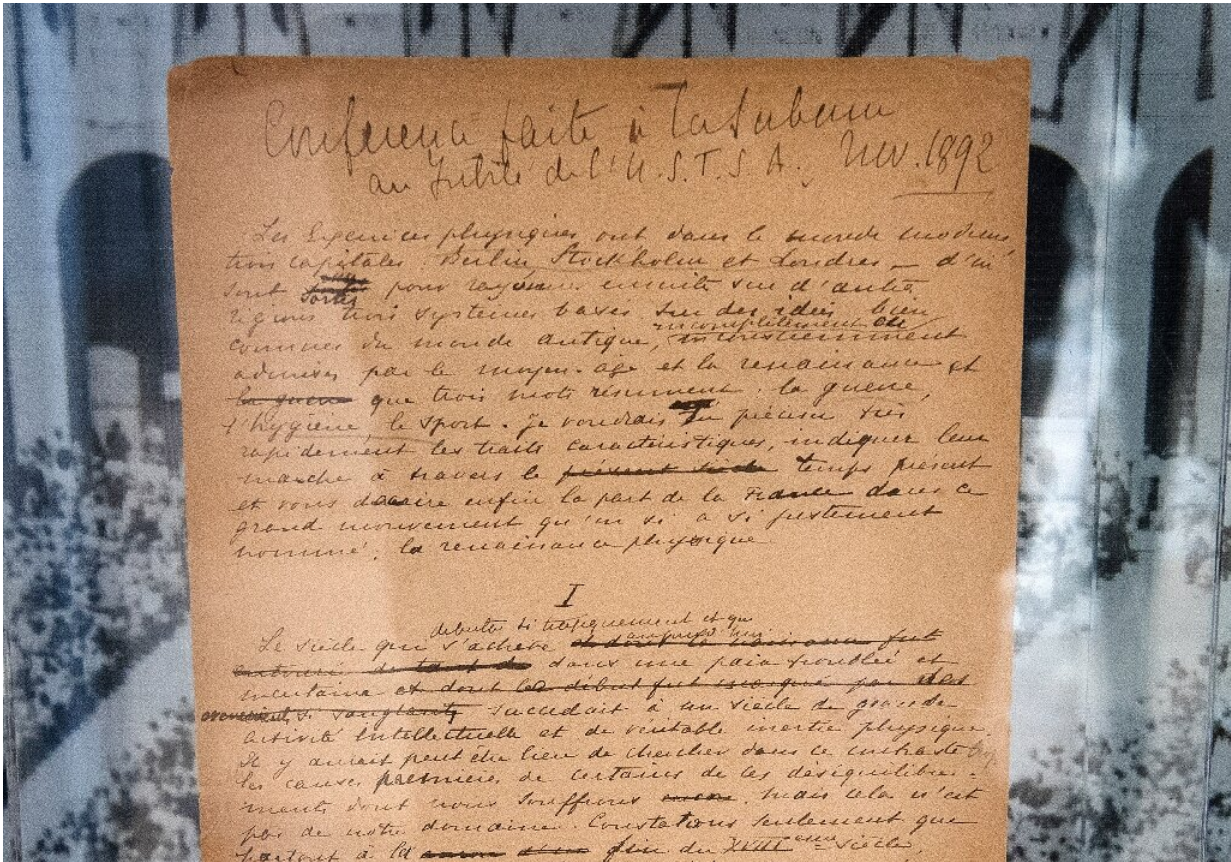 Conférence faite à la Sorbonne
au Jubilé de l'U.S.F.S.A. Nov. 1892
Les Exercices physiques ont dans le monde moderne
trois capitales Berlin, Stockholm et Londres – d'où
sont sortis pour rayonner ensuite sur d'autres
régions trois systèmes basés sur des idées bien
incomplètement ou
connues du monde antique, inconsciemment
admises par le moyen-âge et la renaissance et
la guerre que trois mots résument : la guerre,
l'hygiène, le sport. Je voudrais en préciser très
rapidement les traits caractéristiques, indiquer leur
marche à travers le présent siècle temps présent
et vous dire enfin la part de la France dans ce
grand mouvement qu'on a si justement
nommé : la renaissance physique.
I
débuta si tragiquement et qui
Le siècle qui s'achève et dont la fut
dans une paix troublée et
incertaine et dont le début fut marqué par des
si sanglants succédait à un siècle de grande
activité intellectuelle et de véritable inertie physique.
Il y aurait peut être lieu de chercher dans ce contraste
les causes premières de certains de ces déséquilibre-
ments dont nous souffrons encore. mais cela n'est
pas de notre domaine. Constatons seulement que
partout à la fin du XVIII siècle,